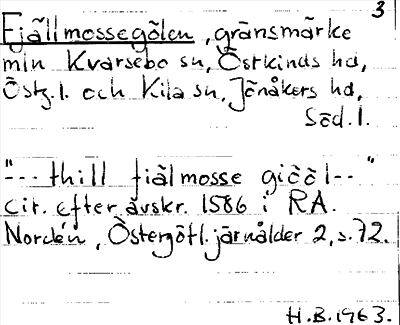 3
Fjällmossegölen, gränsmärke
mln Kvarsebo sn, Östkinds hd,
Östg.l. och Kila sn, Jönåkers hd,
Söd.l.
"--- thill fiälmosse giööl--"
cit. efter avskr. 1586 i RA.
Nordén, Östergötl. järnålder 2, s. 72.
H.B. 1963.